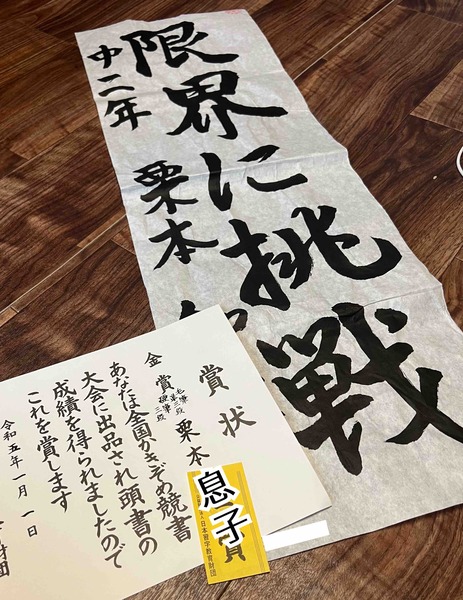 限界に挑戦
中二年 栗本
賞状
金賞 栗本
あなたは全国かきぞめ競書
大会に出品され頭書の
成績を得られましたので
これを賞します
令和五年一月一日
財団
息子
賞
日本習字教育財団